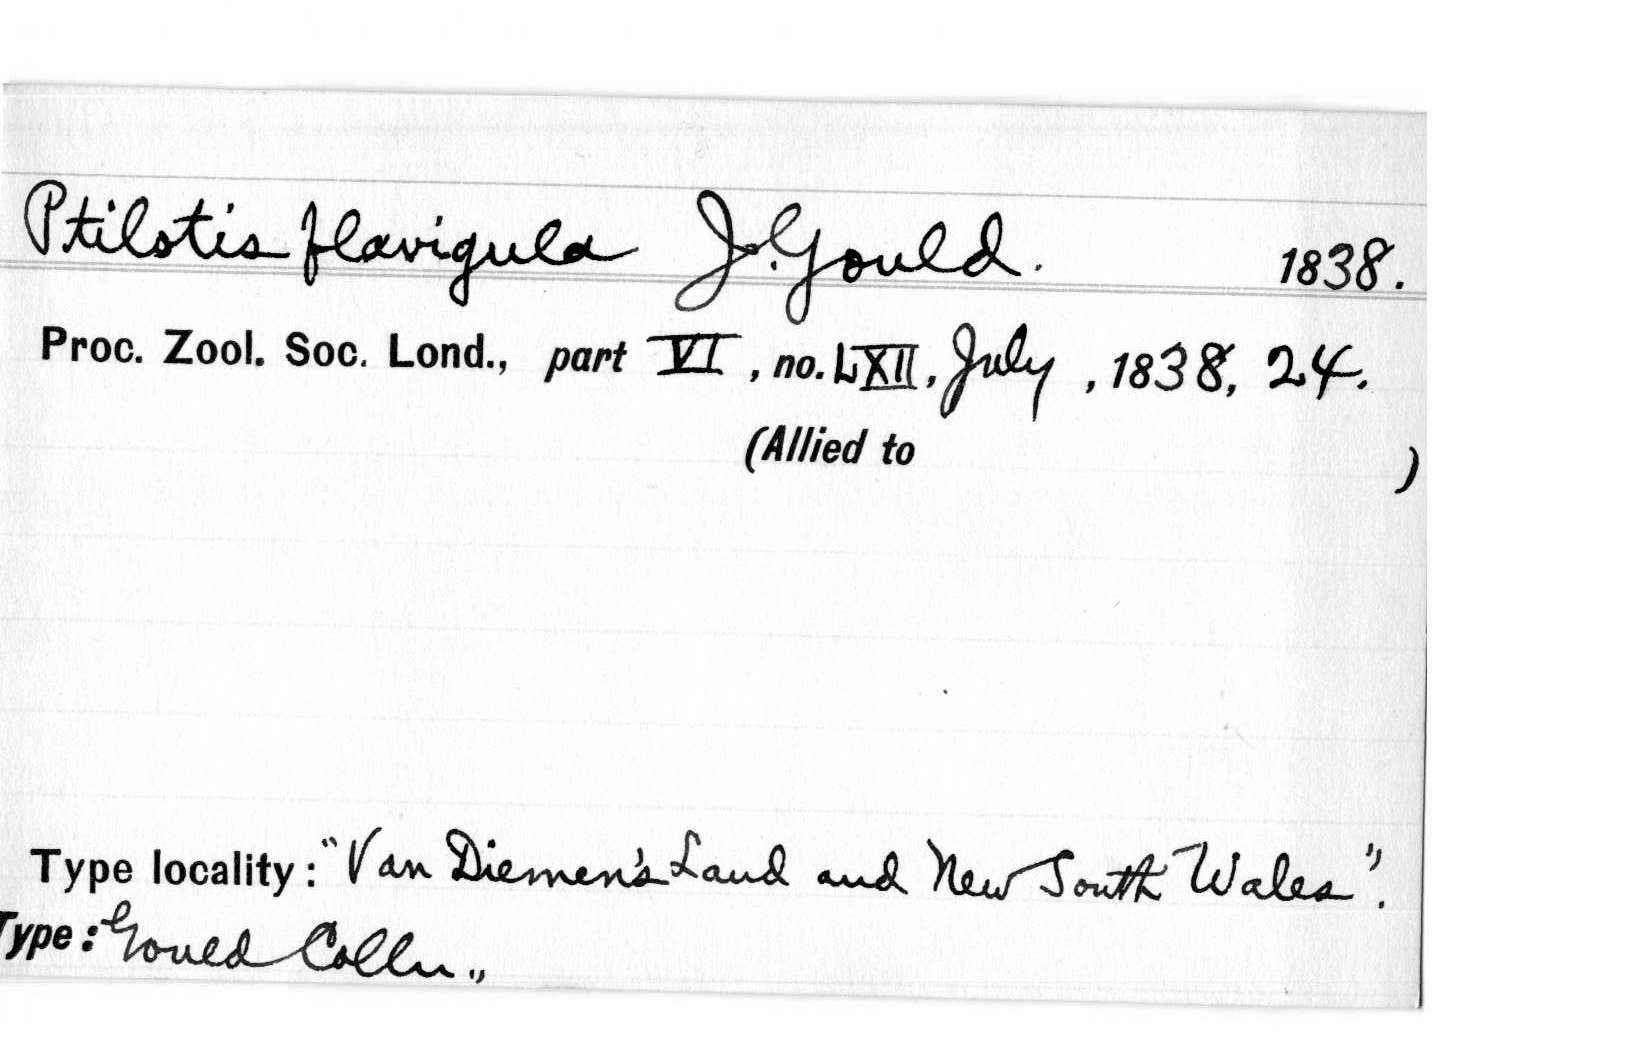 Ptilotis flavigula J. Gould. 1838.
Proc. Zool. Soc. Lond., part VI, no. LXII, July, 1838, 24.
(Allied to )
Type locality: "Van Diemen's Land and New South Wales".
Type: Gould Colln.,